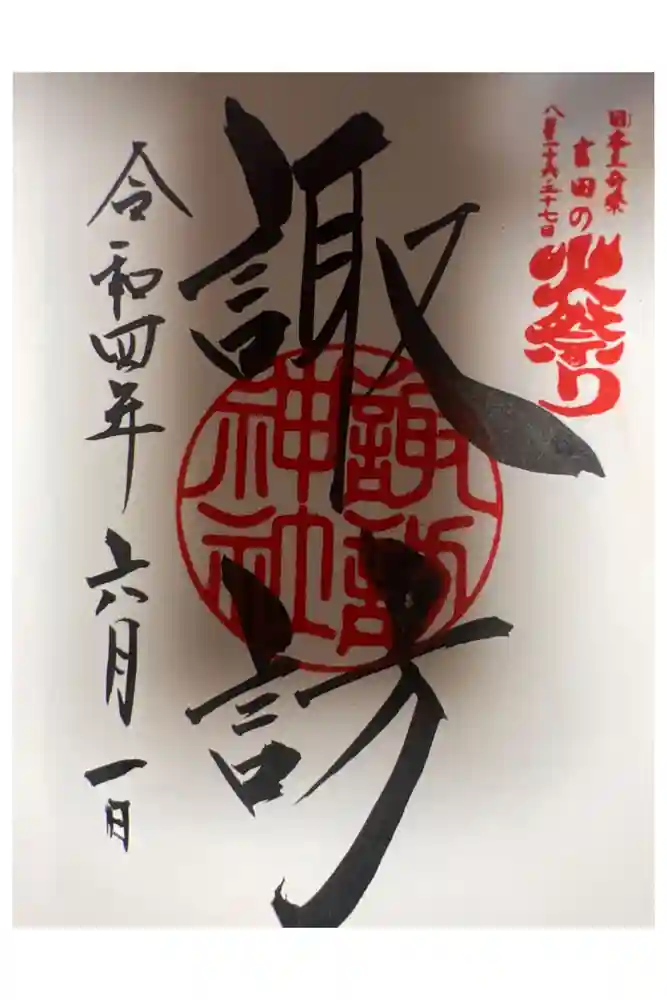 日本三奇祭
八月二十六・二十七日
吉田の
火祭り
諏訪
諏訪
神社
令和四年六月一日